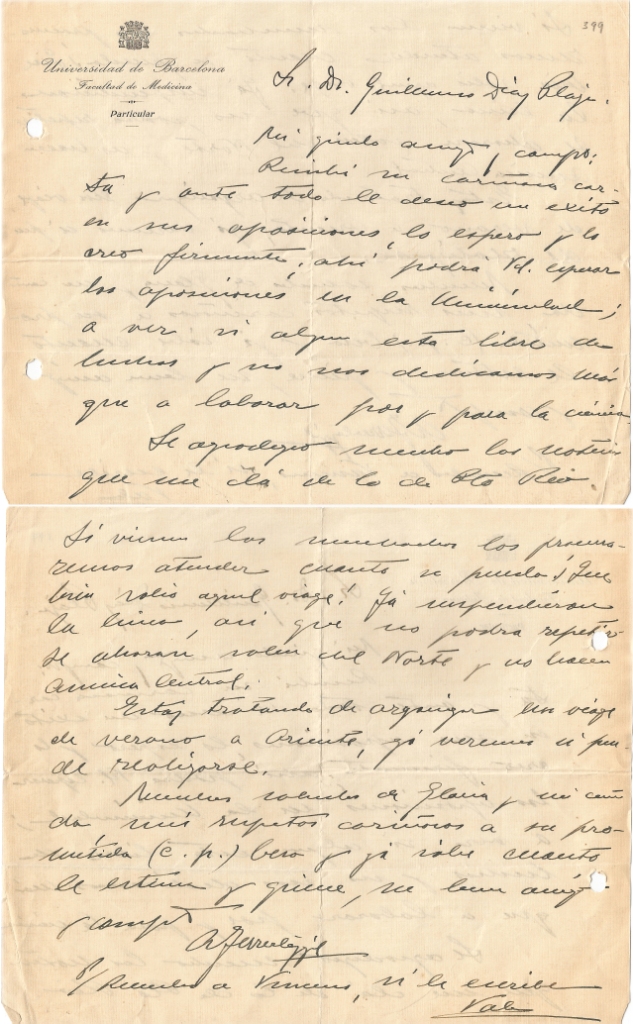 399
Universidad de Barcelona
Facultad de Medicina
Particular
Sr. Dr. Guillermo Díaz Plaja.
Mi querido amigo y compº:
Recibí su cariñosa car-
ta y ante todo le deseo un exito
en sus oposiciones, lo espero y lo
creo firmemente, ahi podrá Vd. esperar
las oposiciones en la Universidad;
a ver si algun esta libre de
luchas y no nos dedicamos más
que a laborar por y para la ciencia.
Le agradezco mucho las noticias
que me dá de lo de Pto Rico.
Si vienen los muchachos los procura-
remos atender cuanto se pueda ¡Que
bien salio aquel viage! Ya suspendieron
la linea, asi que no podra repetir
se ahora salen del Norte y no hacen
America Central.
Estoy tratando de organizar un viage
de verano a Oriente, ya veremos si pue-
de realizarse.
Muchos saludos de Gloria y mi
da, mis respetos cariñosos a su pro-
metida (c. p.) beso y ya sabe cuanto
le estima y quiere, su buen amigo
y compº
P/ Recuerdos a Vicens, si le escribe
Vale